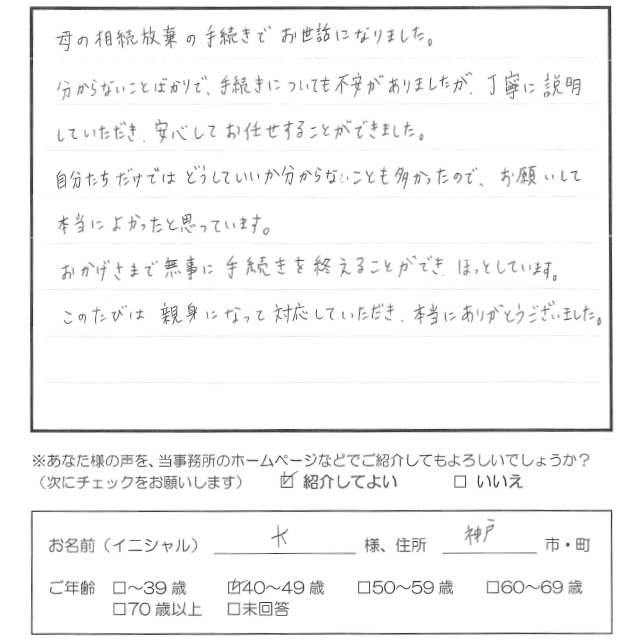 母の相続放棄の手続きでお世話になりました。
分からないことばかりで、手続きについても不安がありましたが、丁寧に説明
していただき、安心してお任せすることができました。
自分たちだけではどうしていいか分からないことも多かったので、お願いして
本当によかったと思っています。
おかげさまで無事に手続きを終えることができ、ほっとしています。
このたびは親身になって対応していただき、本当にありがとうございました。
※あなた様の声を、当事務所のホームページなどでご紹介してもよろしいでしょうか？
（次にチェックをお願いします） ☑ 紹介してよい □ いいえ
お名前（イニシャル） K 様、住所 神戸 市・町
ご年齢 □～39歳 ☑40～49歳 □50～59歳 □60～69歳
□70歳以上 □未回答